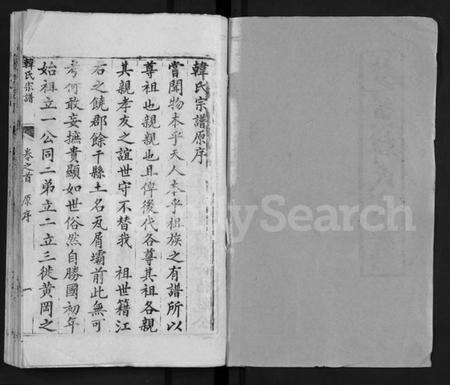 韓氏宗譜原序
嘗聞物本乎天人本乎祖族之有譜所以
尊祖也親親也且俾後代各尊其祖各親
其親孝友之誼世守不替我 祖世籍江
右之饒郡餘干縣土名瓦屑壩前此無可
考何敢妄撫貴顯如世俗然自勝國初年
始祖立一公同二弟立二立三徙黃岡之
韓氏宗譜 卷之首 原序 一
MySearch